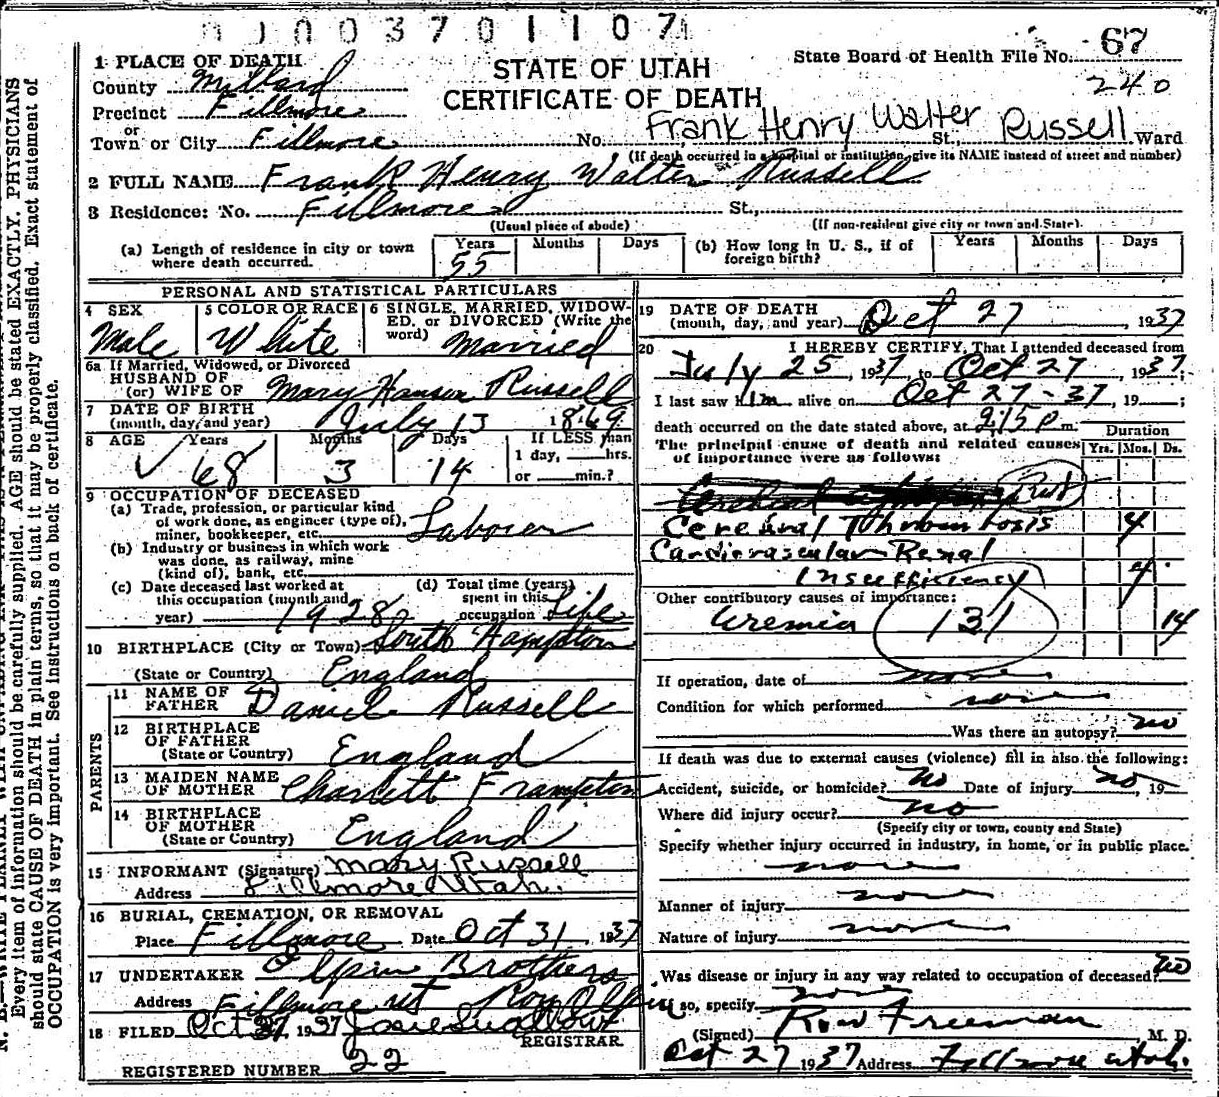 0003701107
1 PLACE OF DEATH
County Millard
Precinct Fillmore
or
Town or City Fillmore
STATE OF UTAH
CERTIFICATE OF DEATH
State Board of Health File No. 67
240
No. Frank Henry Walter St., Russell Ward
(If death occurred in a hospital or institution, give its NAME instead of street and number)
2 FULL NAME Frank Henry Walter Russell
3 Residence: No. Fillmore St.,
(Usual place of abode) (If non-resident give city or town and State)
(a) Length of residence in city or town where death occurred. Years 55 Months Days
(b) How long in U. S., if of foreign birth? Years Months Days
PERSONAL AND STATISTICAL PARTICULARS
4 SEX Male
5 COLOR OR RACE White
6 SINGLE, MARRIED, WIDOWED, or DIVORCED (Write the word) Married
6a If Married, Widowed, or Divorced
HUSBAND OF
(or) WIFE OF Mary Hanson Russell
7 DATE OF BIRTH
(month, day, and year) July 13 1869
8 AGE Years 68 Months 3 Days 14 If LESS than
1 day, hrs.
or min.?
9 OCCUPATION OF DECEASED
(a) Trade, profession, or particular kind
of work done, as engineer (type of),
miner, bookkeeper, etc. Laborer
(b) Industry or business in which work
was done, as railway, mine
(kind of), bank, etc.
(c) Date deceased last worked at
this occupation (month and
year) 1928
(d) Total time (years)
spent in this
occupation Life
10 BIRTHPLACE (City or Town) South Hampton
(State or Country) England
PARENTS
11 NAME OF
FATHER Daniel Russell
12 BIRTHPLACE
OF FATHER
(State or Country) England
13 MAIDEN NAME
OF MOTHER Charlett Frampton
14 BIRTHPLACE
OF MOTHER
(State or Country) England
15 INFORMANT (Signature) Mary Russell
Address Fillmore Utah.
16 BURIAL, CREMATION, OR REMOVAL
Place Fillmore Date Oct 31, 1937
17 UNDERTAKER Brothers
Address Fillmore ut Roy
18 FILED Oct 1937
REGISTRAR
REGISTERED NUMBER 22
19 DATE OF DEATH
(month, day, and year) Oct 27, 1937
20 I HEREBY CERTIFY, That I attended deceased from
July 25, 1937, to Oct 27, 1937;
I last saw him alive on Oct 27-37, 19;
death occurred on the date stated above, at 2:15 p m.
The principal cause of death and related causes
of importance were as follows:
Duration
Yrs. Mos. Ds.
Cerebral Thrombosis 4
Cardiovascular Renal
Insufficiency 4
Other contributory causes of importance:
Uremia 131 14
If operation, date of none
Condition for which performed none
Was there an autopsy? no
If death was due to external causes (violence) fill in also the following:
Accident, suicide, or homicide? no Date of injury no, 19
Where did injury occur? no
(Specify city or town, county and State)
Specify whether injury occurred in industry, in home, or in public place.
none
Manner of injury none
Nature of injury none
Was disease or injury in any way related to occupation of deceased? no
so, specify none
(Signed) Freeman M. D.
Oct 27 1937 Address Fillmore Utah.
Every item of information should be carefully supplied. AGE should be stated EXACTLY. PHYSICIANS
should state CAUSE OF DEATH in plain terms, so that it may be properly classified. Exact statement of
OCCUPATION is very important. See instructions on back of certificate.